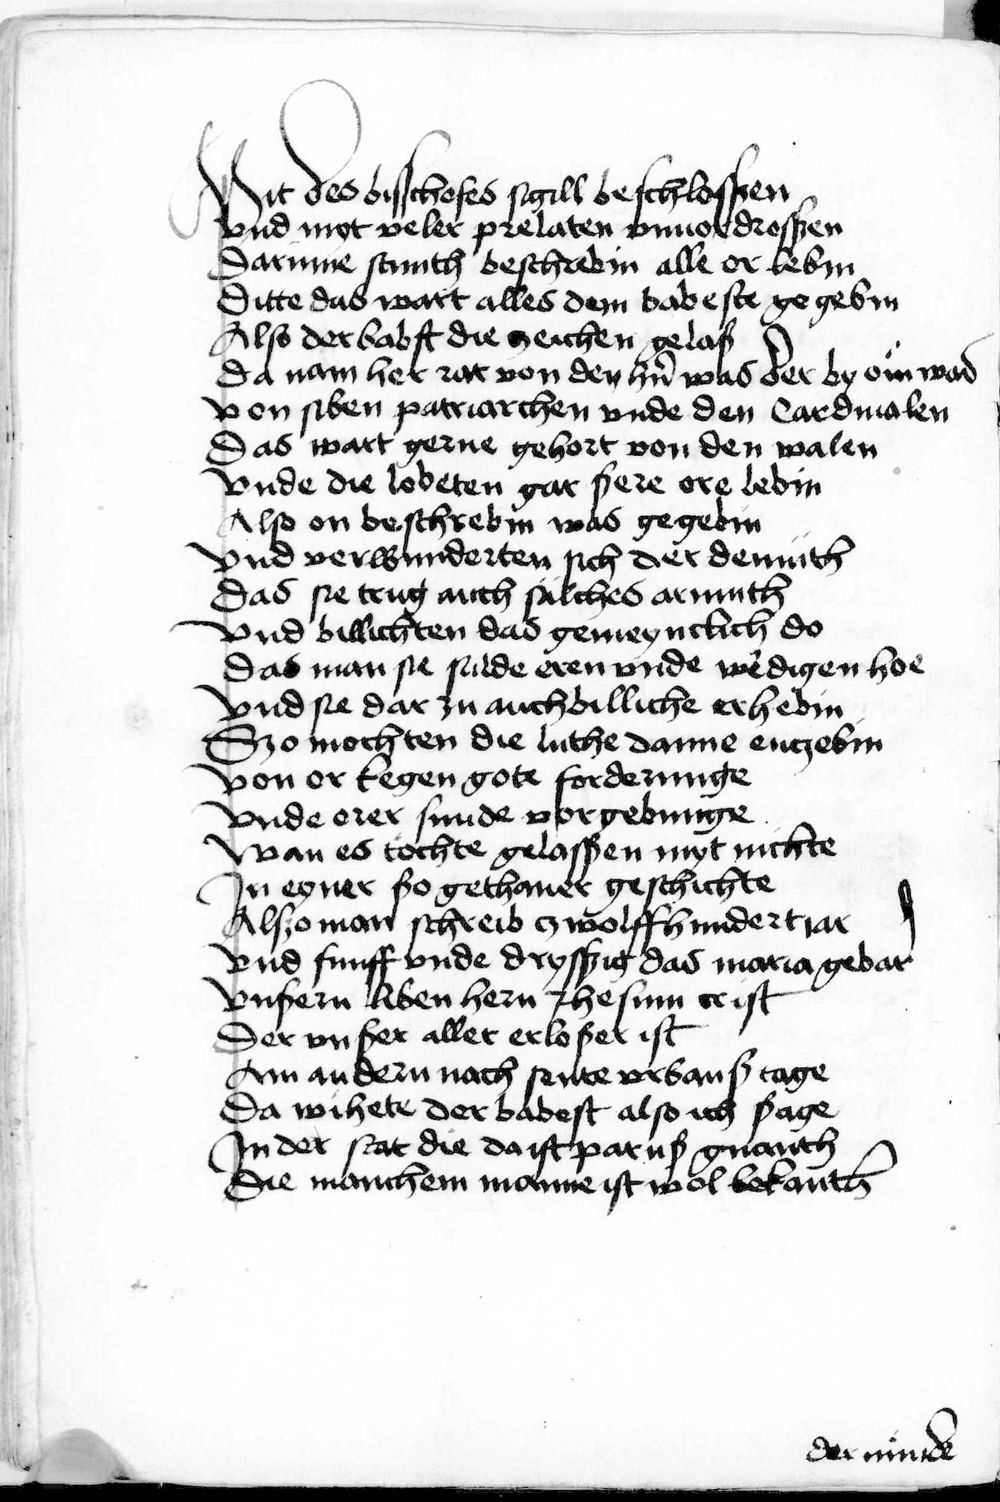 Mit des bisschofes sigill beschlossen
vnd myt veler prelaten vnuordrossen
Darinne stunth beschrebin alle or lebin
Ditte das wart alles dem babeste gegebin
Also der babst die zeichen gelaß
Da nam her rat von den hñ was der by öm was
von siben patriarchen vnde den Cardinalen
Das wart gerne gehort von den walen
Vnde die lobeten gar ßere ore lebin
Also on beschrebin was gegebin
Vnd verwunderten sich der demüth
Das sie trug auch sülches armuth
Vnd billichten das gemeynclich do
Das man sie sulde eren vnde wedigen hoe
Vnd sie dar zu auch billiche erhebin
Szo mochten die luthe danne entzebin
von or kegen gote forderunge
Vnde orer sunde vorgebunge
Wan es tochte gelasßen myt nichte
In eyner ßo gethaner geschichte
Alszo man schreib czwolffhundert jar
Vnd funff vnde drysszig das maria gebar
Vnßern liben hern Jhesum crist
Der vnßer aller erloßer ist
Am andern nach sente vrbanß tage
Da wihete der babest also ich ßage
In der stat die da ist paruß gnanth
Die manchem manne ist wol bekanth
der minde